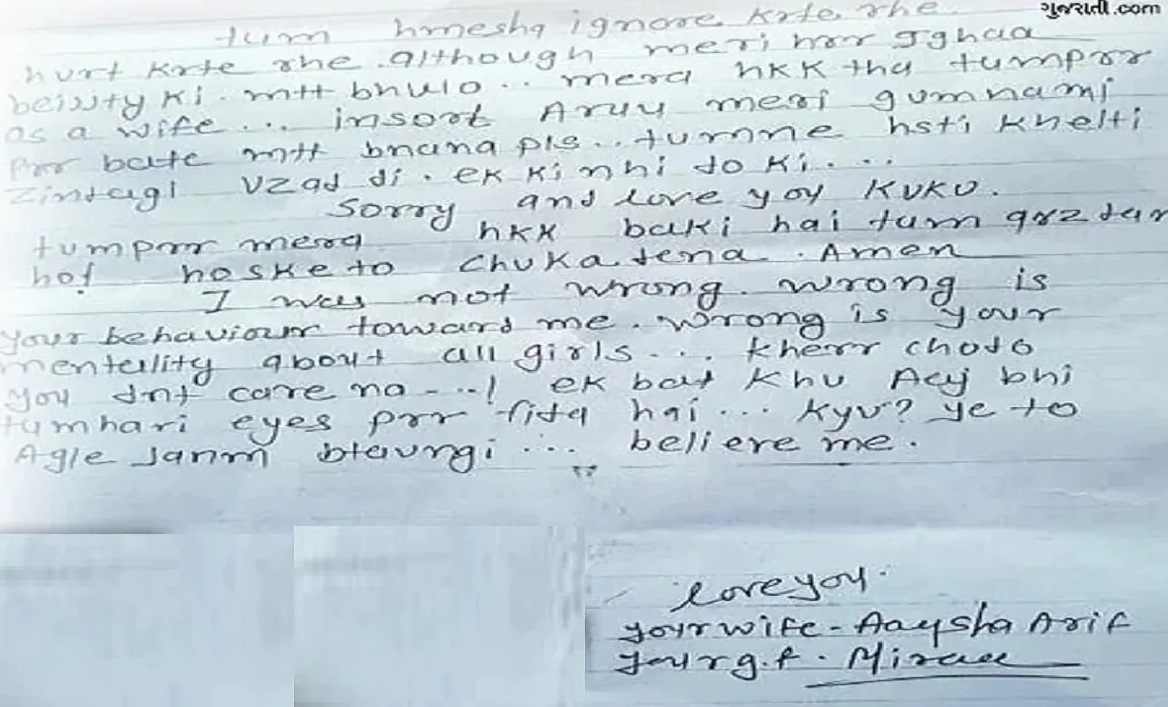 ગુજરાતી.com
tum hmesha ignore krte rhe
hurt krte rhe. although meri hrr Jghaa
beiwty ki. mtt bhulo.. mera hkk tha tumprr
as a wife... insort Aruu meri gumnami
prr bate mtt bnana pls.. tumne hsti khelti
Zindagi Uzad di. ek ki nhi do ki....
Sorry and love you KuKu.
tumprr mera hkk baki hai tum qrzdar
ho! hoske to chuka dena. Amen
I was not wrong. wrong is
your behaviour toward me. wrong is your
mentality about all girls... kherr chodo
you dnt care na ---! ek bat khu Aaj bhi
tumhari eyes prr fida hai... kyu? ye to
Agle Janm btaungi... believe me.
love you.
your wife - Aaysha Arif
your g.f. Mirau